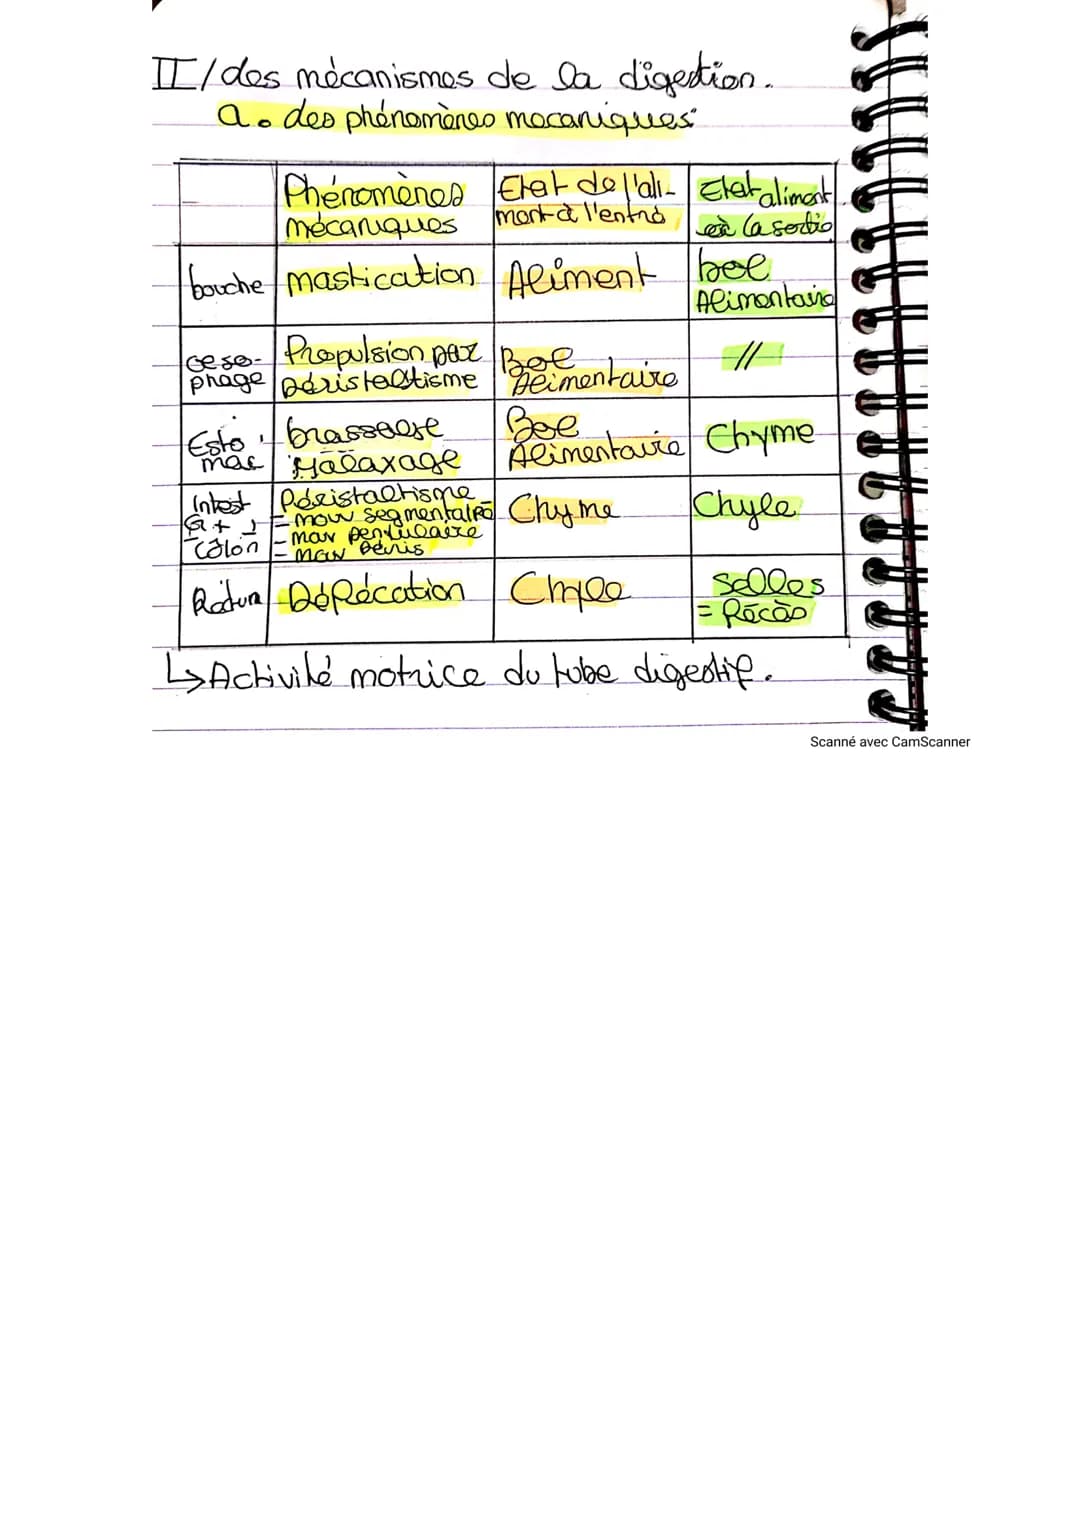 II/des mécanismes de la digestion.
a. des phénomènes mécaniques
Phénomènes mécaniques
Etat de l'ali-
ment à l'entré
Etat aliment
à la sortie
bouche
mastication
Aliment
bol
Alimentaire
Oeso-
phage
Propulsion par
péristaltisme
Bol
Alimentaire
//
Esto
mac
brassage
Malaxage
Bol
Alimentaire
Chyme
Intest
G +
Côlon
Péristaltisme
- mouv segmentaire
- mouv pendulaire
- mouv Péris
Chyme
Chyle
Rectum
Défécation
Chyle
Selles
= Fécès
↳ Activité motrice du tube digestif.
Scanné avec CamScanner